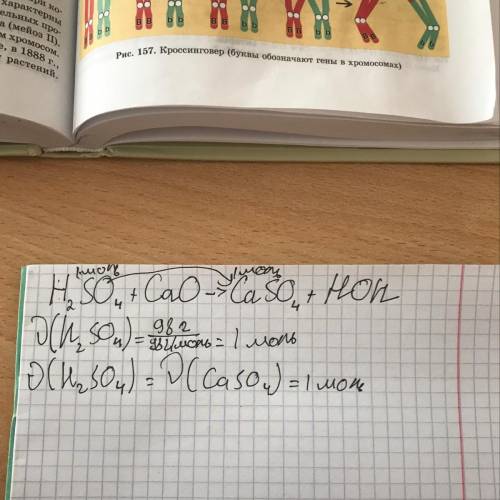 ри ко-
характерны
ельных про-
а (мейоз II),
м хромосом,
е, в 1888 г.,
растений.
B B b b B B b b B B b b
Рис. 157. Кроссинговер (буквы обозначают гены в хромосомах)
1моль 1моль
H₂SO₄ + CaO → CaSO₄ + HOH
ν(H₂SO₄) = 98 г / 98 г/моль = 1 моль
ν(H₂SO₄) = ν(CaSO₄) = 1 моль